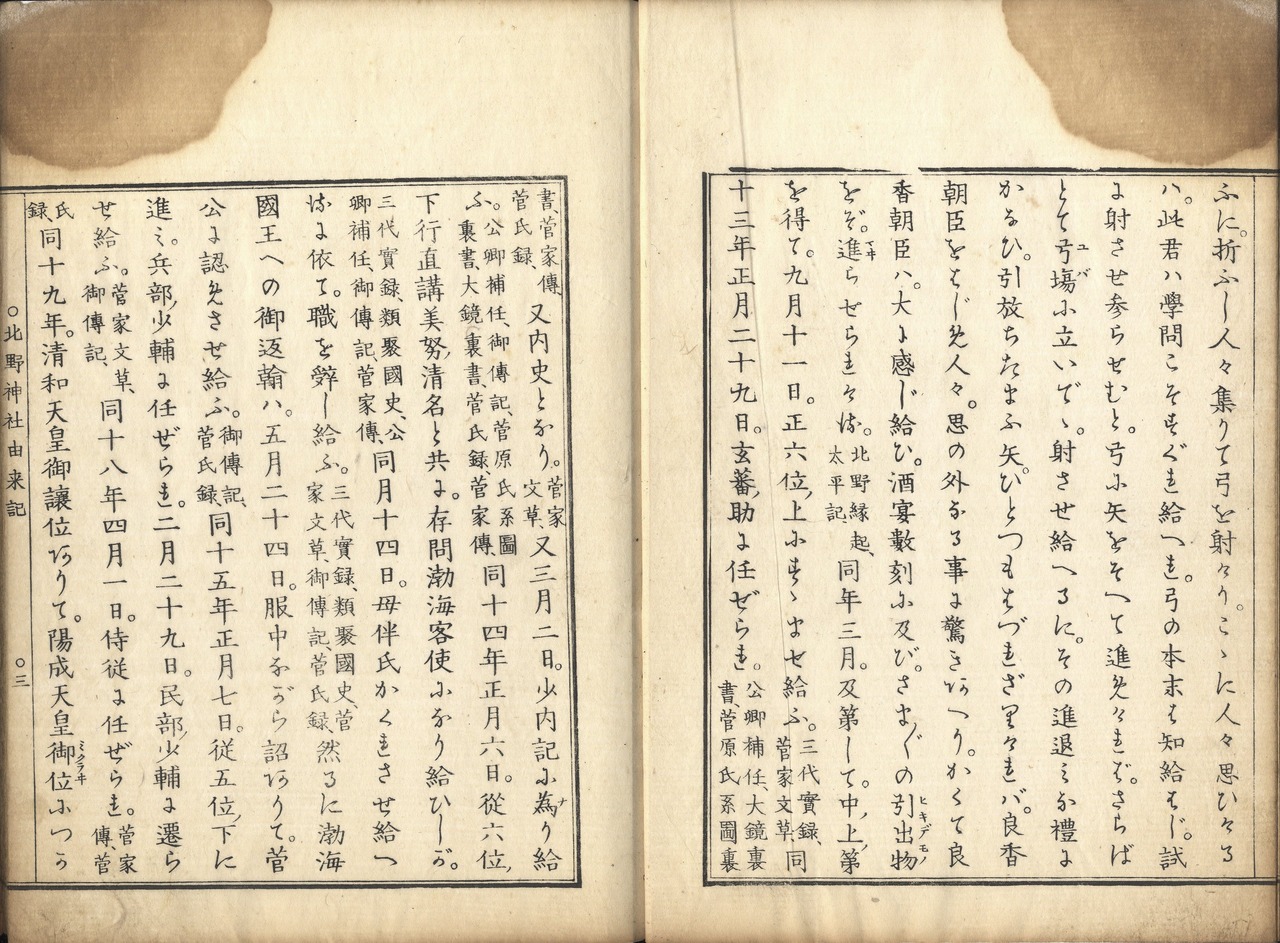 ふに。折ふし人々集りて弓を射けり。こゝに人々思ひける
ハ。此君ハ學問こそすぐれ給へれ。弓の本末は知給はじ。試
に射させ参らせむと。弓に矢をそへて進めければ。さらば
とて弓塲に立いでゝ。射させ給へるに。その進退みな禮に
かなひ。引放ちたまふ矢。ひとつもはづれざりけれバ。良香
朝臣をはじめ人々。思の外なる事に驚きあへり。かくて良
香朝臣ハ。大に感じ給ひ。酒宴數刻に及び。さま〴〵の引出物
をぞ。進らせられける。北野縁起、太平記、同年三月。及第して。中上第
を得て。九月十一日。正六位上にすゝませ給ふ。三代實録、菅家文草、同
十三年正月二十九日。玄蕃助に任ぜらる。公卿補任、大鏡裏書、菅原氏系圖裏
書、菅家傳、菅氏録、又内史となり。菅家文草、又三月二日。少内記に為り給
ふ。公卿補任、御傳記、菅原氏系圖裏書、大鏡裏書、菅氏録、菅家傳、同十四年正月六日。從六位
下行直講美努清名と共に。存問渤海客使になり給ひしが。
三代實録、類聚國史、公卿補任、御傳記、菅家傳、同月十四日。母伴氏かくれさせ給へ
るに依て。職を辭し給ふ。三代實録、類聚國史、菅家文草、御傳記、菅氏録、然るに渤海
國王への御返翰ハ。五月二十四日。服中ながら詔ありて。菅
公に認めさせ給ふ。御傳記、菅氏録、同十五年正月七日。従五位下に
進み。兵部少輔に任ぜらる。二月二十九日。民部少輔に遷ら
せ給ふ。菅家文草、御傳記、同十八年四月一日。侍従に任ぜらる。菅家傳、菅
氏録、同十九年。清和天皇御譲位ありて。陽成天皇御位につか
○北野神社由来記　○三